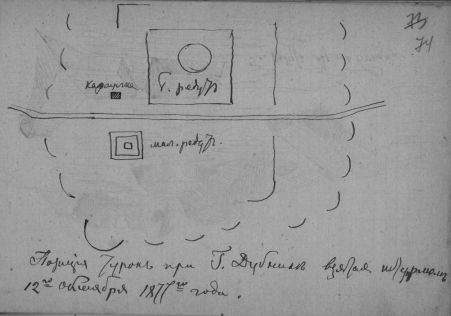 73
74
караулка
Г. редутъ
мал. редутъ.
Позиція Турокъ при Г. Дубнякѣ взятая штурмомъ
12го октября 1877го года.